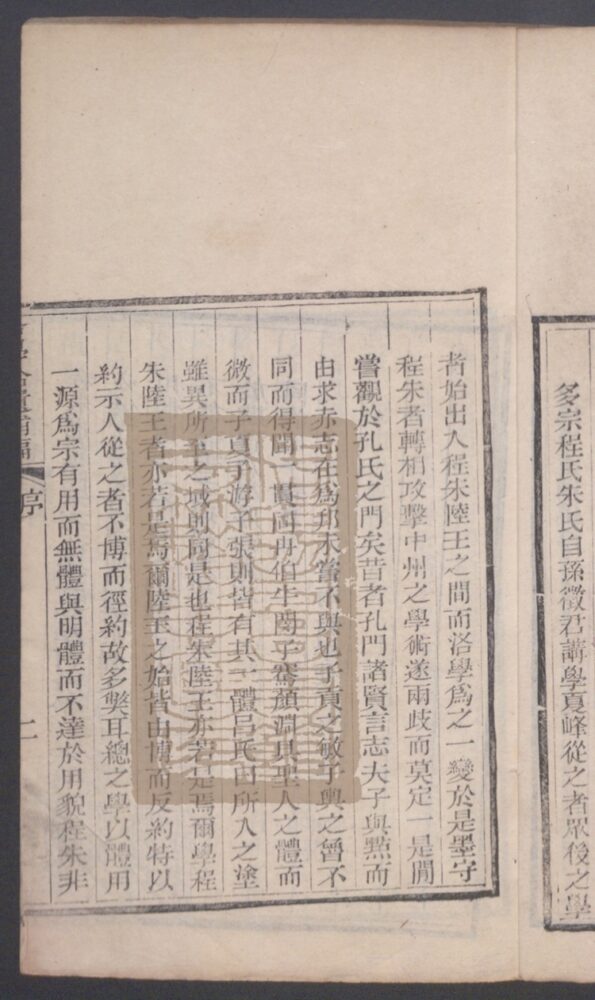 多宗程氏朱氏自孫徵君講學夏峰從之者眾後之學
者始出入程朱陸王之間而洛學為之一變於是墨守
程朱者轉相攻擊中州之學術遂兩歧而莫定一是閒
嘗觀於孔氏之門矣昔者孔門諸賢言志夫子與點而
由求赤志在為邦未嘗不與也子貢之敏子輿之魯不
同而得聞一貫同冉伯牛閔子騫顏淵具聖人之體而
微而子夏子游子張則皆有其一體吕氏曰所入之塗
雖異所至之域則同是也程朱陸王亦若是焉爾學程
朱陸王者亦若是焉爾陸王之始皆由博而反約特以
約示人從之者不博而徑約故多獘耳總之學以體用
一源為宗有用而無體與明體而不達於用貌程朱非
遺補編 序 二